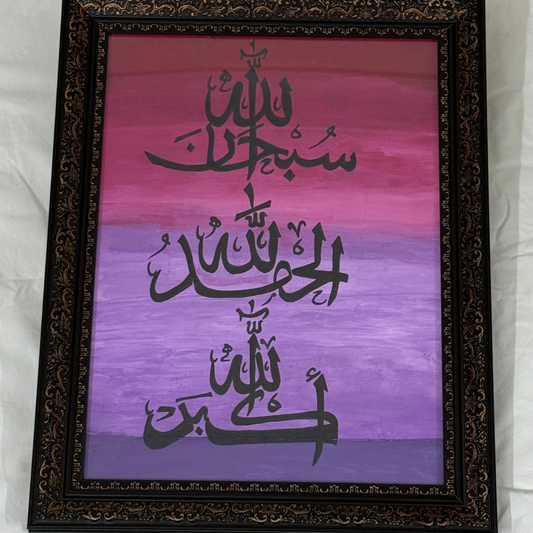 سُبْحَانَ الله
الحَمْدُ لله
الله أَكْبَر